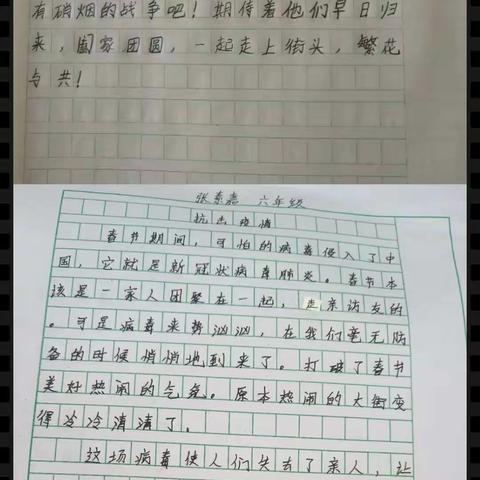 有硝烟的战争吧！期待着他们早日归
来，阖家团圆，一起走上街头，繁花
与共！
张东嘉 六年级
抗击疫情
春节期间，可怕的病毒侵入了中
国，它就是新冠状病毒肺炎。春节本
该是一家人团聚在一起，走亲访友的
。可是病毒来势汹汹，在我们毫无防
备的时候悄悄地到来了。打破了春节
美好热闹的气氛。原本热闹的大街变
得冷冷清清了。
这场病毒使人们失去了亲人，让